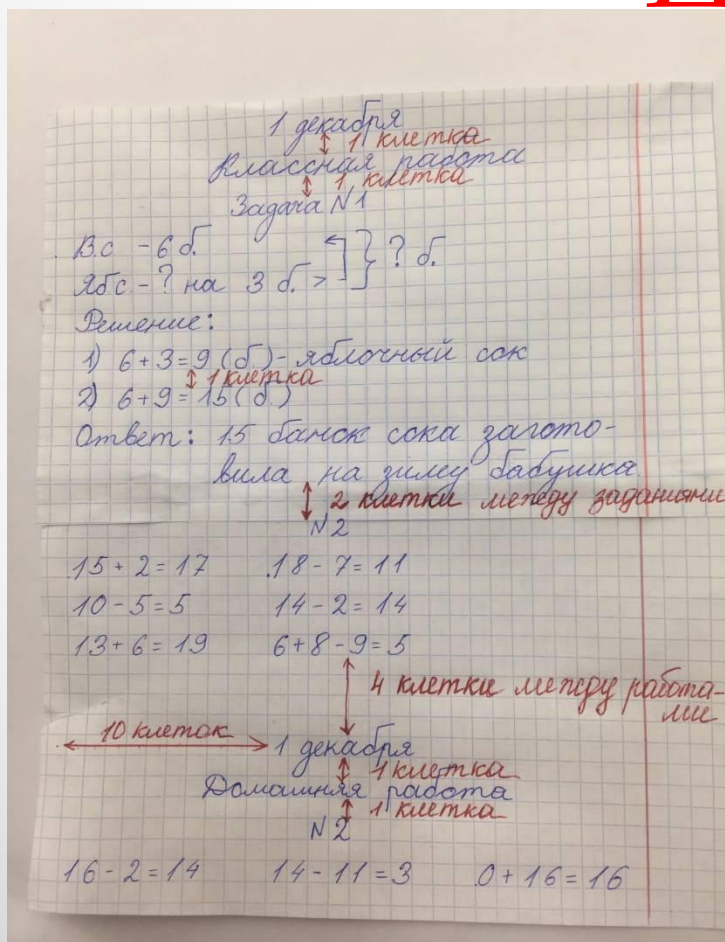 1 декабря
1 клетка
Классная работа
1 клетка
Задача №1
В.с - 6 б.
? б.
Ябс. - ? на 3 б. >
Решение:
1) 6 + 3 = 9 (б.) - яблочный сок
1 клетка
2) 6 + 9 = 15 (б.)
Ответ: 15 банок сока загото-
вила на зиму бабушка.
2 клетки между заданиями
№2
15 + 2 = 17 18 - 7 = 11
10 - 5 = 5 14 - 2 = 14
13 + 6 = 19 6 + 8 - 9 = 5
4 клетки между работа-
ми
10 клеток 1 декабря
1 клетка
Домашняя работа
1 клетка
№2
16 - 2 = 14 14 - 11 = 3 0 + 16 = 16